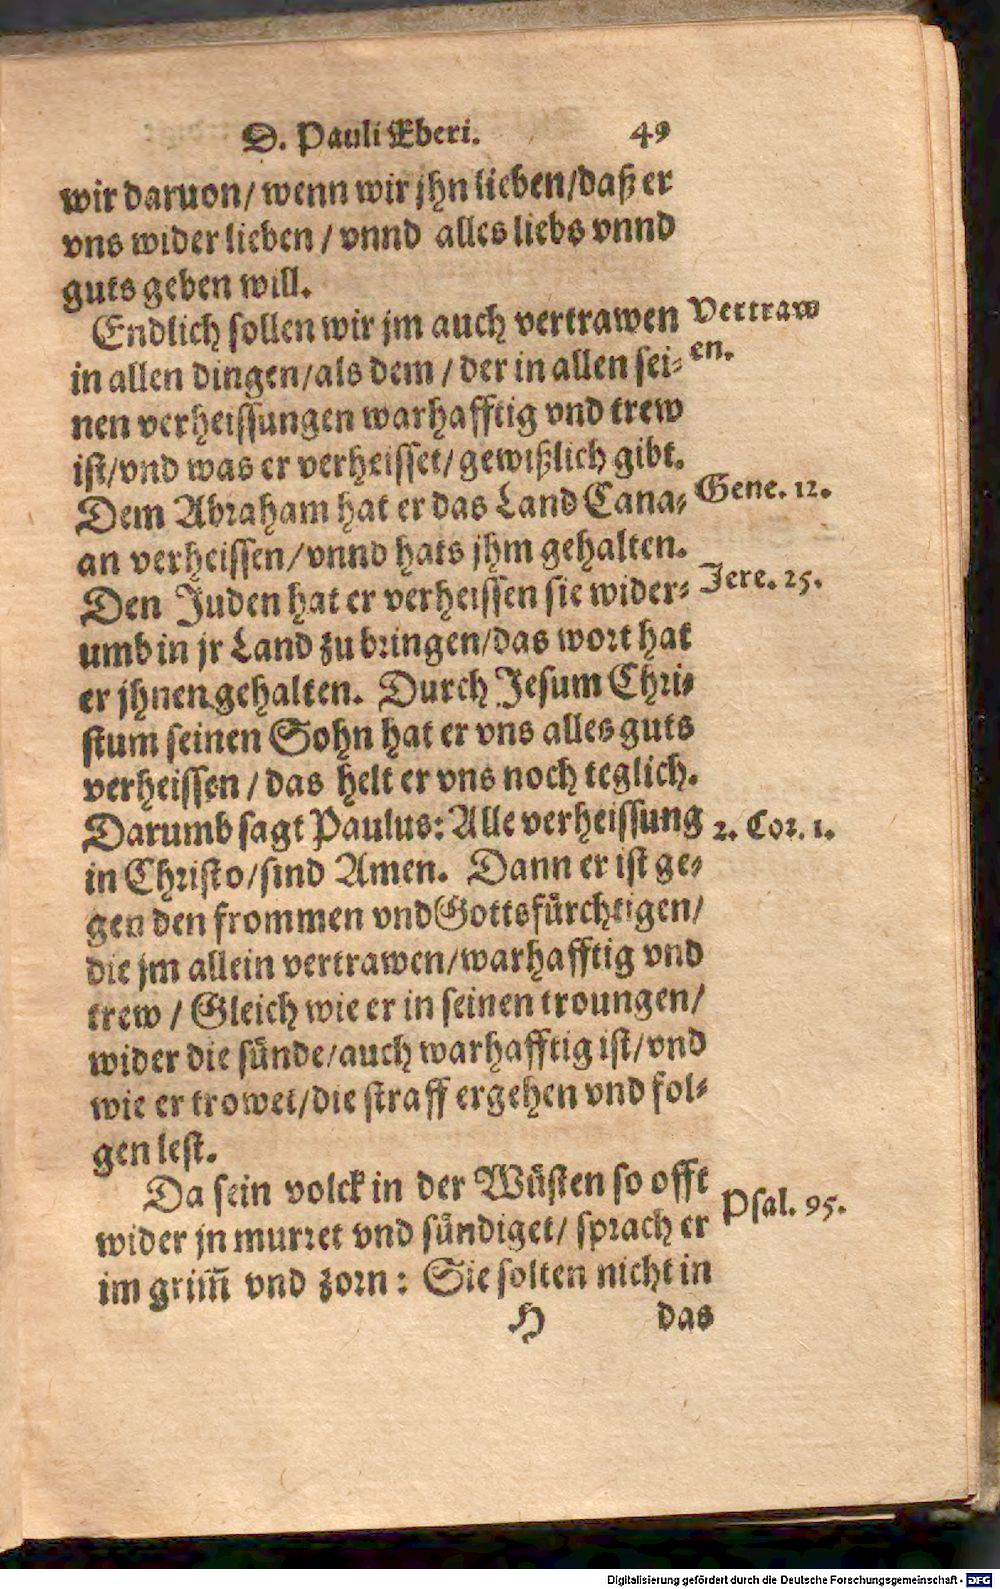 D. Pauli Eberi. 49
wir daruon/ wenn wir jhn lieben/daß er
vns wider lieben / vnnd alles liebs vnnd
guts geben will.
Endlich sollen wir jm auch vertrawen
Vertraw
in allen dingen/als dem / der in allen sei-
en.
nen verheissungen warhafftig vnd trew
ist/vnd was er verheisset/ gewißlich gibt.
Dem Abraham hat er das Land Cana-
Gene. 12.
an verheissen/vnnd hats jhm gehalten.
Den Juden hat er verheissen sie wider-
Jere. 25.
umb in jr Land zu bringen/das wort hat
er jhnen gehalten. Durch Jesum Chri-
stum seinen Sohn hat er vns alles guts
verheissen / das helt er vns noch teglich.
Darumb sagt Paulus: Alle verheissung
2. Cor. 1.
in Christo/sind Amen. Dann er ist ge-
gen den frommen vnd Gottsfürchtigen/
die jm allein vertrawen/warhafftig vnd
trew / Gleich wie er in seinen troungen/
wider die sünde/auch warhafftig ist/vnd
wie er trowet/die straff ergehen vnd fol-
gen lest.
Da sein volck in der Wüsten so offt
Psal. 95.
wider jn murret vnd sündiget/ sprach er
im grim̃ vnd zorn: Sie solten nicht in
H das
Digitalisierung gefördert durch die Deutsche Forschungsgemeinschaft - DFG